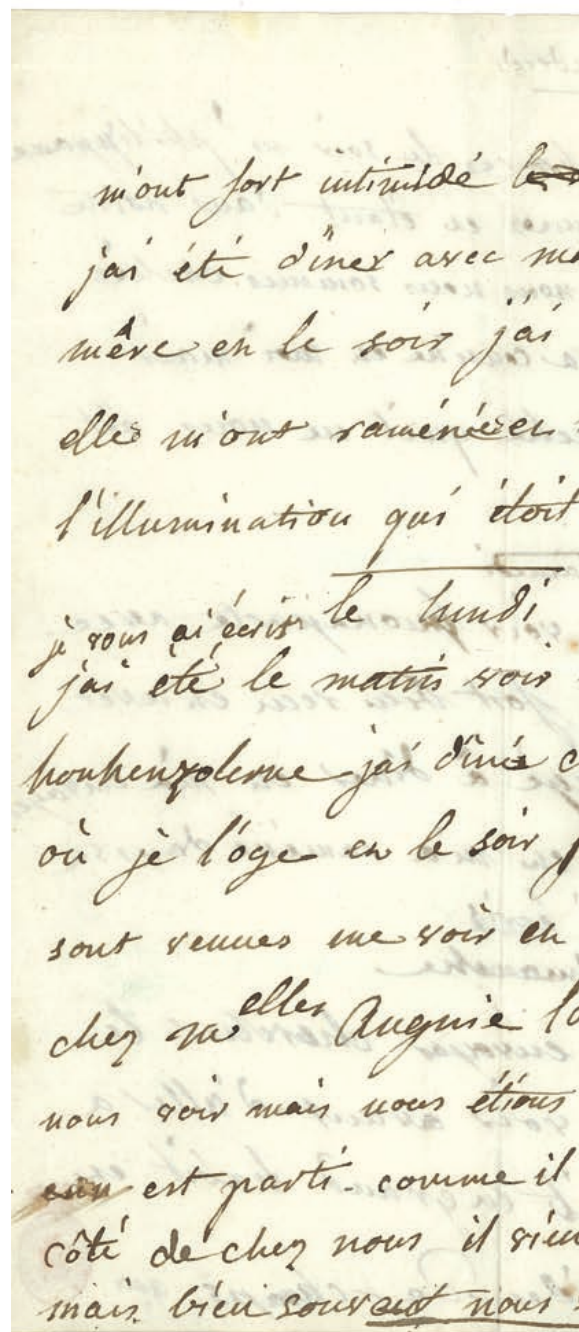 m'ont fort intimidé
j'ai été dîner avec ma
mère en le soir j'ai
elles m'ont raménéeen
l'illumination qui étoit
le lundi
je vous ai écris
j'ai été le matin voir
houhenzolerne j'ai dîné c
où je l'oge en le soir j
sont venues me voir en
chez m^elles Auguie l
nous voir mais nous étions
est parti. comme il
côté de chez nous il vien
mais bien souvent nous